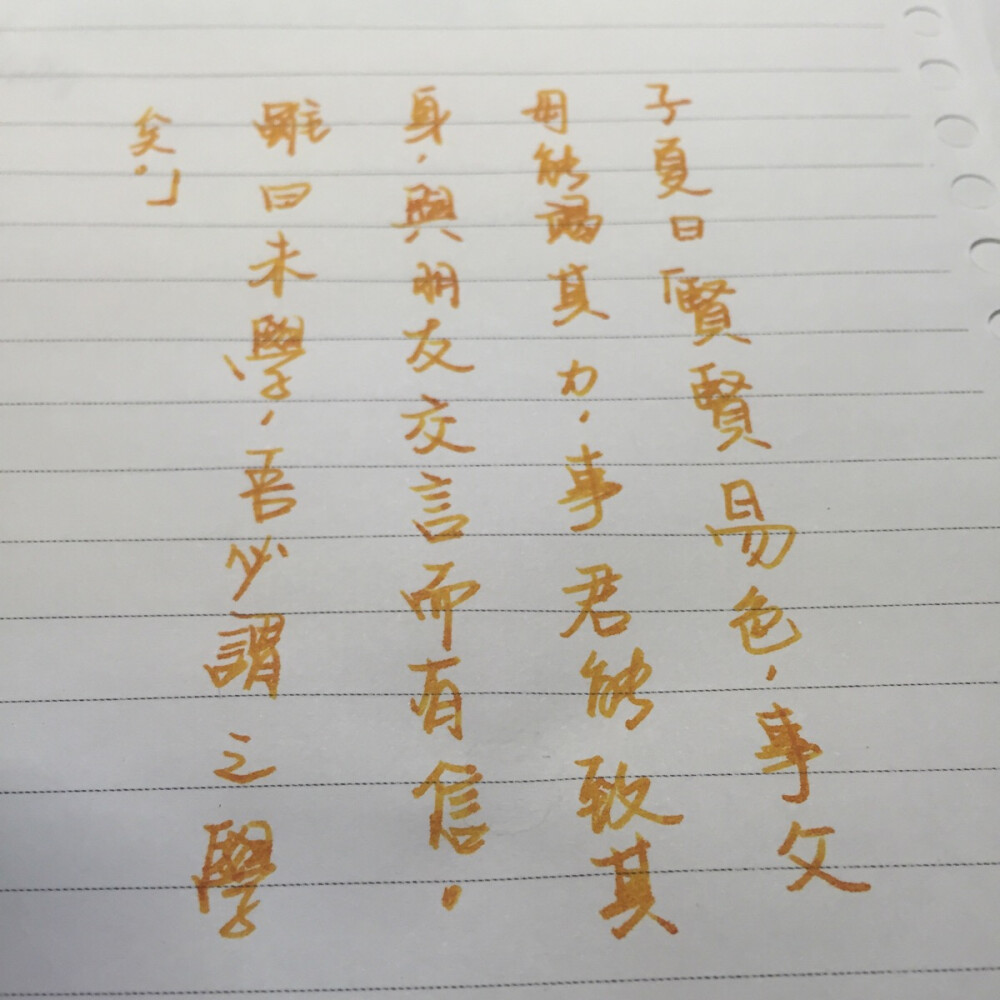 子夏曰「賢賢易色，事父
母能竭其力，事君能致其
身，與朋友交言而有信，
雖曰未學，吾必謂之學
矣。」